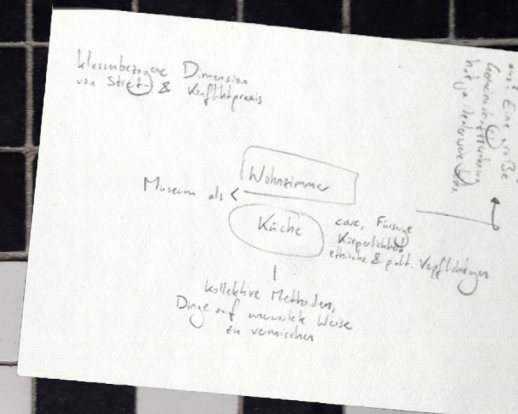 klassenbezogene Dimension
von Streit & Konfliktpraxis
Wohnzimmer
Museum als <
Küche
care, Fürsorge
Körperlichkeit
ethische & polit. Verpflichtungen
kollektive Methoden,
Dinge auf unerwartete Weise
zu vermischen